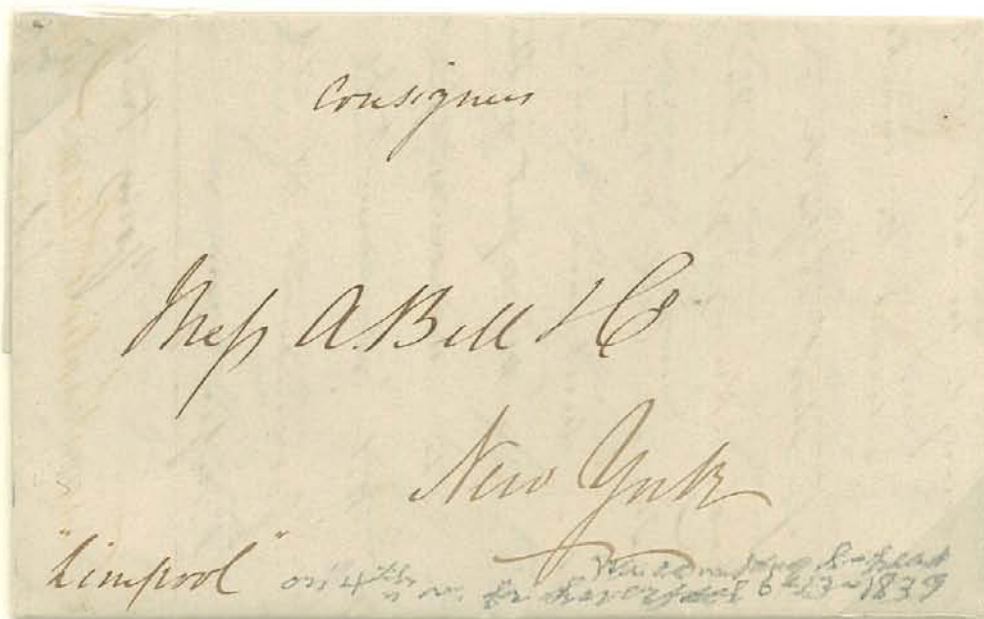 Consignees
Mess A. Bell & Co
New York
"Liverpool"
on 4th
for Liverpool 6-13-1839